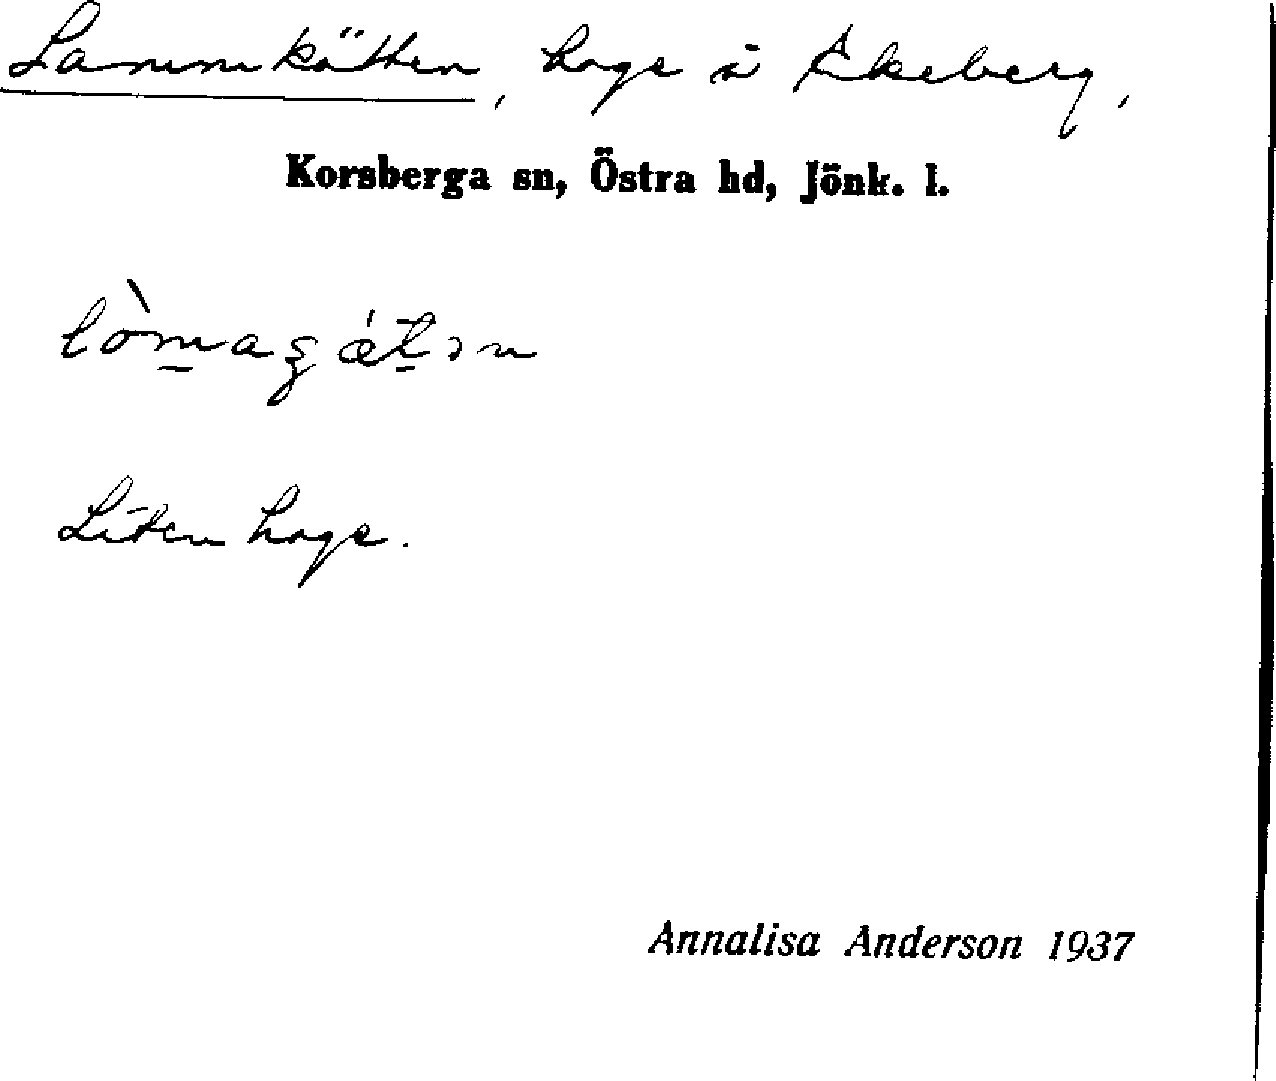 Lammkätten, hage å Ekeberg,
Korsberga sn, Östra hd, Jönk. l.
Liten hage.
Annalisa Anderson 1937